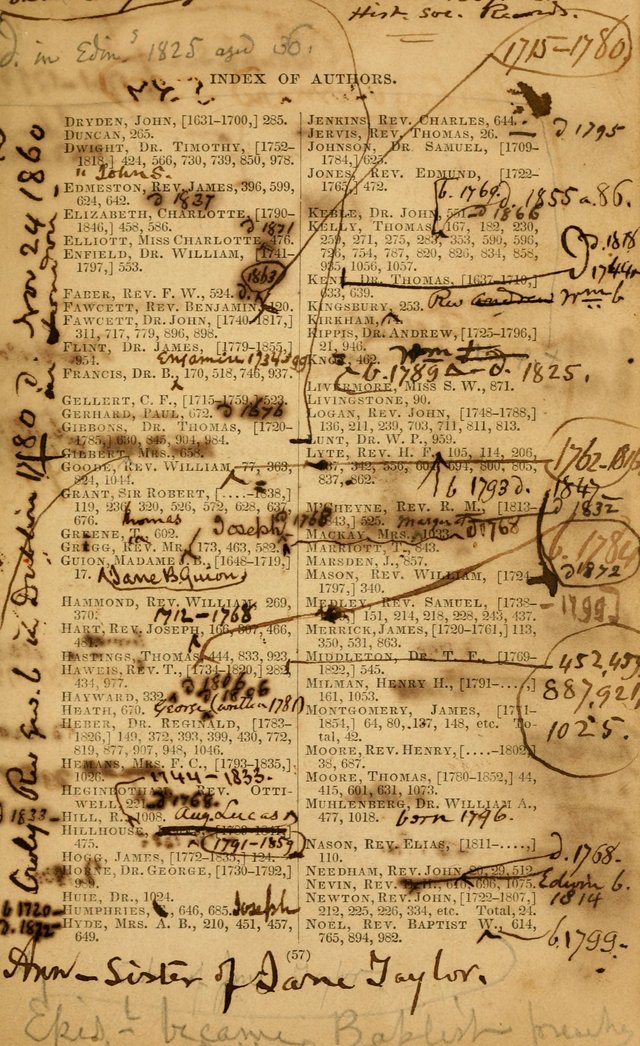 Hist. Soc. Records.
d. in Edin 1825 aged 56.
1715-1780
INDEX OF AUTHORS.
DRYDEN, JOHN, [1631-1700,] 285.
DUNCAN, 265.
DWIGHT, DR. TIMOTHY, [1752-
1818,] 424, 566, 730, 739, 850, 978.
" John S.
EDMESTON, REV. JAMES, 396, 599,
624, 642. d 1837
ELIZABETH, CHARLOTTE, [1790-
1846,] 458, 586. d 1871
ELLIOTT, MISS CHARLOTTE, 476.
ENFIELD, DR. WILLIAM, [1741-
1797,] 553.
1863
FABER, REV. F. W., 524. d.
FAWCETT, REV. BENJAMIN, 120.
FAWCETT, DR. JOHN, [1740-1817,]
311, 717, 779, 896, 898.
FLINT, DR. JAMES, [1779-1855,]
954. Benjamin 1734-99
FRANCIS, DR. B., 170, 518, 746, 937.
GELLERT, C. F., [1715-1759,] 523.
GERHARD, PAUL, 672. d 1676
GIBBONS, DR. THOMAS, [1720-
1785,] 630, 845, 904, 984.
GILBERT, MRS. 658.
GOODE, REV. WILLIAM, 77, 363,
824, 1044.
GRANT, SIR ROBERT, [....-1838,]
119, 236, 320, 526, 572, 628, 637,
676. Thomas Joseph d 1768
GREENE, T., 602.
GREGG, REV. MR., 173, 463, 582.
GUION, MADAME J. B., [1648-1719,]
17. Jane B Guion
HAMMOND, REV. WILLIAM, 269,
370. 1712-1768
HART, REV. JOSEPH, 166, 307, 466,
481.
HASTINGS, THOMAS, 444, 833, 923.
HAWEIS, REV. T., [1734-1820,] 282,
434, 977.
HAYWARD, 332. d 1806
HEATH, 670. George (written 1781)
HEBER, DR. REGINALD, [1783-
1826,] 149, 372, 393, 399, 430, 772,
819, 877, 907, 948, 1046.
HEMANS, MRS. F. C., [1793-1835,]
1026. 1744-1833.
HEGINBOTHAM, REV. OTTI-
WELL, 221. d 1768.
d 1833- HILL, R., 1008. Aug. Lucas
HILLHOUSE,
475. 1791-1859
HOGG, JAMES, [1772-1835,] 124.
HORNE, DR. GEORGE, [1730-1792,]
989.
HUIE, DR., 1024.
b 1720- HUMPHRIES, 646, 685. Joseph
HYDE, MRS. A. B., 210, 451, 457,
649.
JENKINS, REV. CHARLES, 644.
JERVIS, REV. THOMAS, 26. - d 1795
JOHNSON, DR. SAMUEL, [1709-
1784,] 625.
JONES, REV. EDMUND, [1722-
1765,] 472.
b. 1769 d. 1855 a. 86.
KEBLE, DR. JOHN, 551 - d 1866
KELLY, THOMAS, 167, 182, 230,
259, 271, 275, 283, 353, 590, 596,
726, 754, 787, 820, 826, 834, 858,
935, 1056, 1057.
KENN, DR. THOMAS, [1637-1710,]
633, 639.
KINGSBURY, 253. Rev Andrew Wm b
KIRKHAM,
KIPPIS, DR. ANDREW, [1725-1796,]
21, 946.
KNOX, 462.
b. 1789 - d. 1825.
LIVERMORE, MISS S. W., 871.
LIVINGSTONE, 90.
LOGAN, REV. JOHN, [1748-1788,]
136, 211, 239, 703, 711, 811, 813.
LUNT, DR. W. P., 959.
LYTE, REV. H. F., 105, 114, 206,
337, 342, 556, 604, 694, 800, 805,
837, 862.
1762-1816
b 1793 d. 1847
M'CHEYNE, REV. R. M., [1813-
1843,] 525. Margaret d 1832
MACKAY, MRS., 1033. d 1768
MARRIOTT, T., 843.
MARSDEN, J., 857.
b. 1784
d 1872
MASON, REV. WILLIAM, [1724-
1797,] 340.
MEDLEY, REV. SAMUEL, [1738-
151, 214, 218, 228, 243, 437. - 1799]
MERRICK, JAMES, [1720-1761,] 113,
350, 531, 863.
MIDDLETON, DR. T. F., [1769-
1822,] 545.
452, 457
887, 921
1025.
MILMAN, HENRY H., [1791-....,]
161, 1053.
MONTGOMERY, JAMES, [1771-
1854,] 64, 80, 137, 148, etc. To-
tal, 42.
MOORE, REV. HENRY, [....-1802,]
38, 687.
MOORE, THOMAS, [1780-1852,] 44,
415, 601, 631, 1073.
MUHLENBERG, DR. WILLIAM A.,
477, 1018. born 1796.
NASON, REV. ELIAS, [1811-....,]
110. d. 1768.
NEEDHAM, REV. JOHN, 20, 29, 512.
NEVIN, REV. 646, 696, 1075. Edwin b.
1814
NEWTON, REV. JOHN, [1722-1807,]
212, 225, 226, 334, etc. Total, 24.
NOEL, REV. BAPTIST W., 614,
765, 894, 982. b. 1799.
(57)
Ann - Sister of Jane Taylor.
Epis. became Baptist preacher